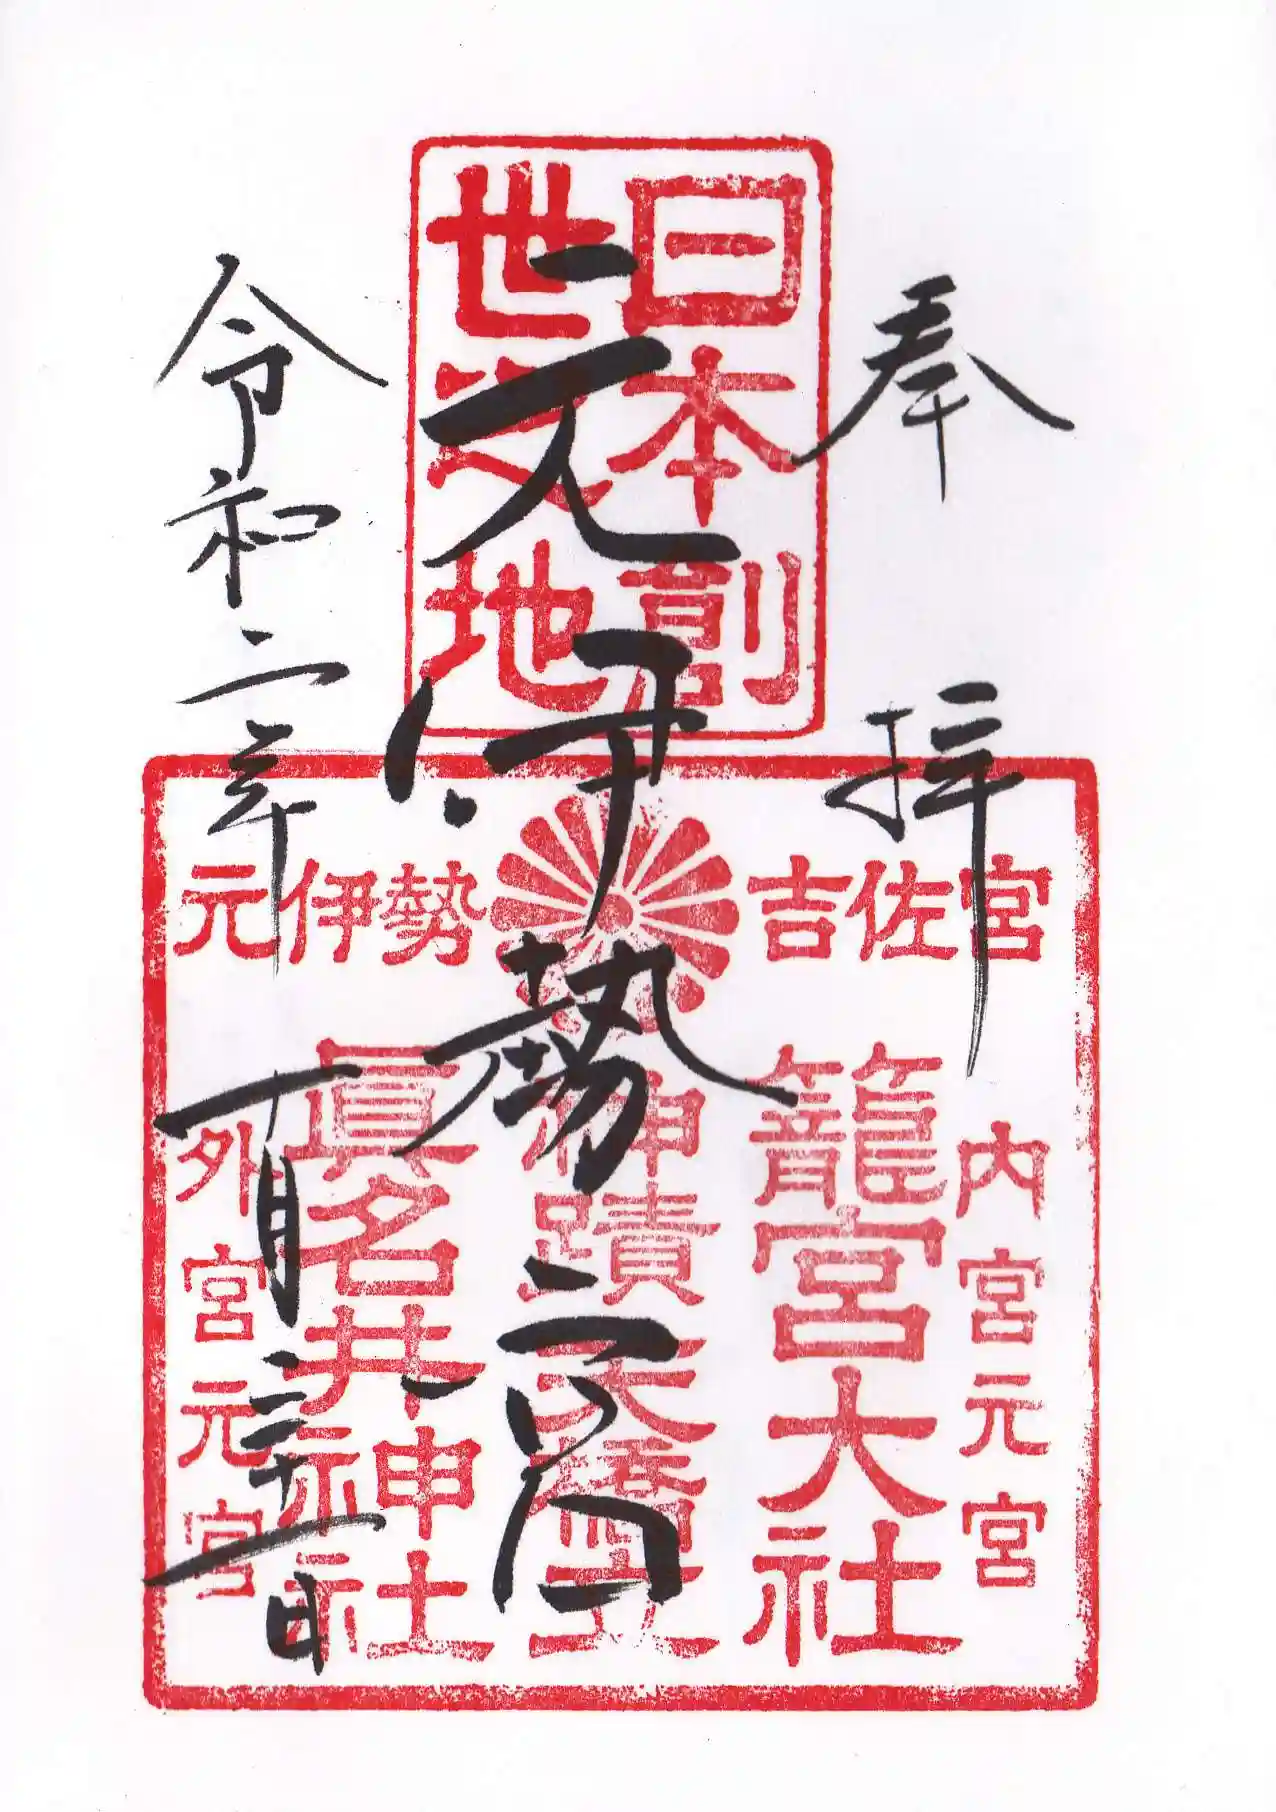 奉拝
日本創
世之地
元伊勢
令和二年
月二十一日
元伊勢 吉佐宮
内宮元宮
籠宮大社
神蹟天橋立
眞名井神社
外宮元宮